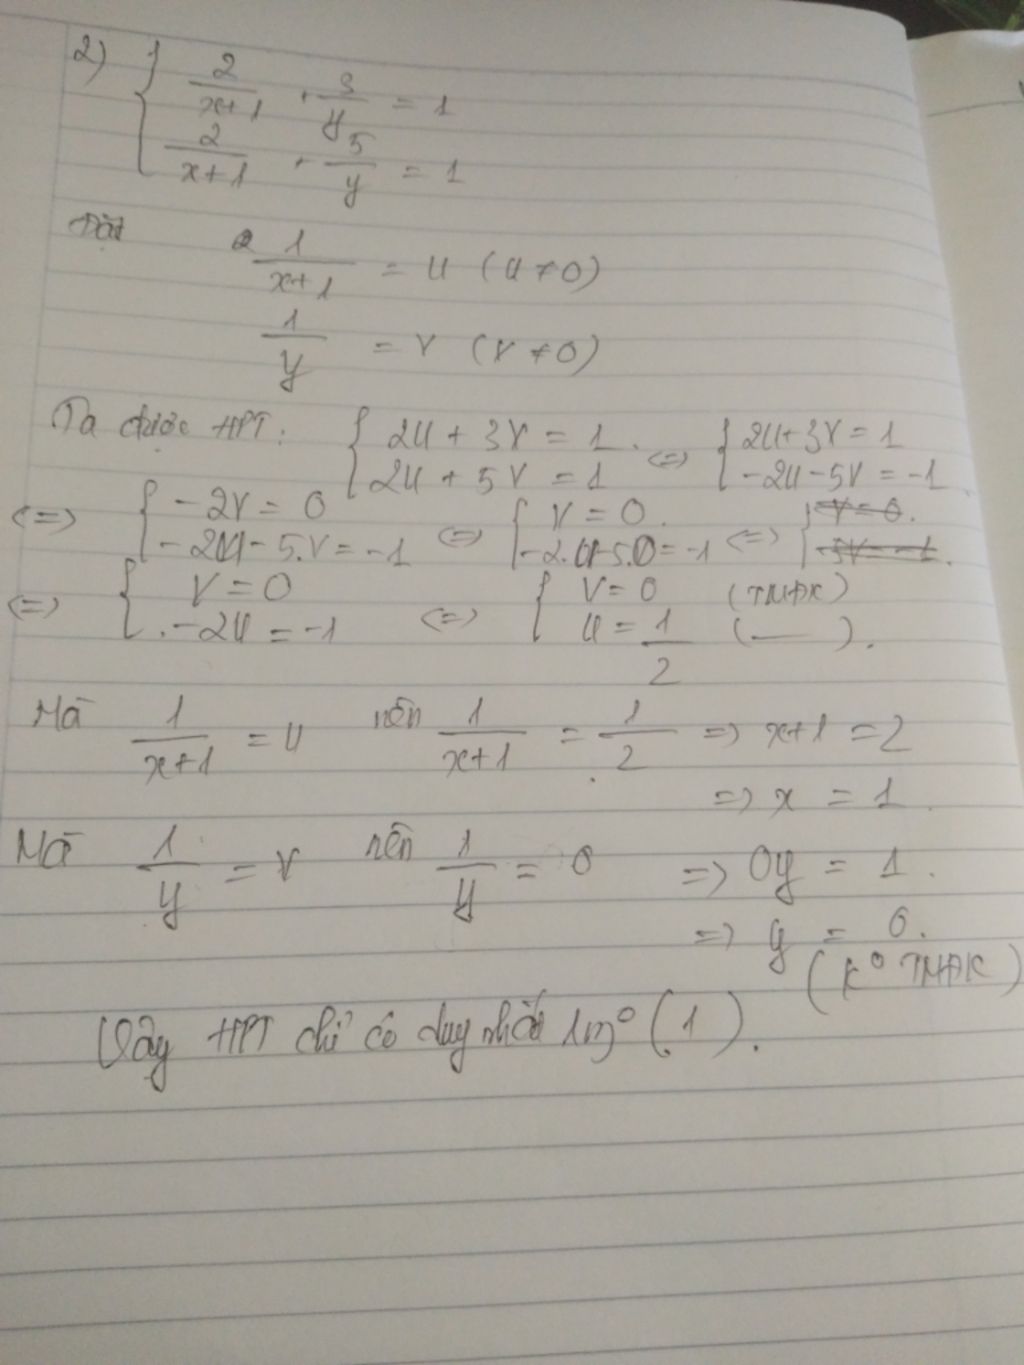 2) { 2/(x+1) + 3/y = 1
2/(x+1) + 5/y = 1
Đặt 1/(x+1) = u (u ≠ 0)
1/y = v (v ≠ 0)
Ta được HPT: { 2u + 3v = 1 <=> { 2u + 3v = 1
2u + 5v = 1 -2u - 5v = -1
<=> { -2v = 0 <=> { v = 0 <=> { v = 0.
-2u - 5.v = -1 -2.u - 5.0 = -1 -5v = -1.
<=> { v = 0 <=> { v = 0 (TMĐK)
-2u = -1 u = 1/2 (——).
Mà 1/(x+1) = u nên 1/(x+1) = 1/2 => x+1 = 2
=> x = 1
Mà 1/y = v nên 1/y = 0 => 0y = 1.
=> y = 0.
(k° TMĐK)
Vậy HPT chỉ có duy nhất 1 ng° (1).